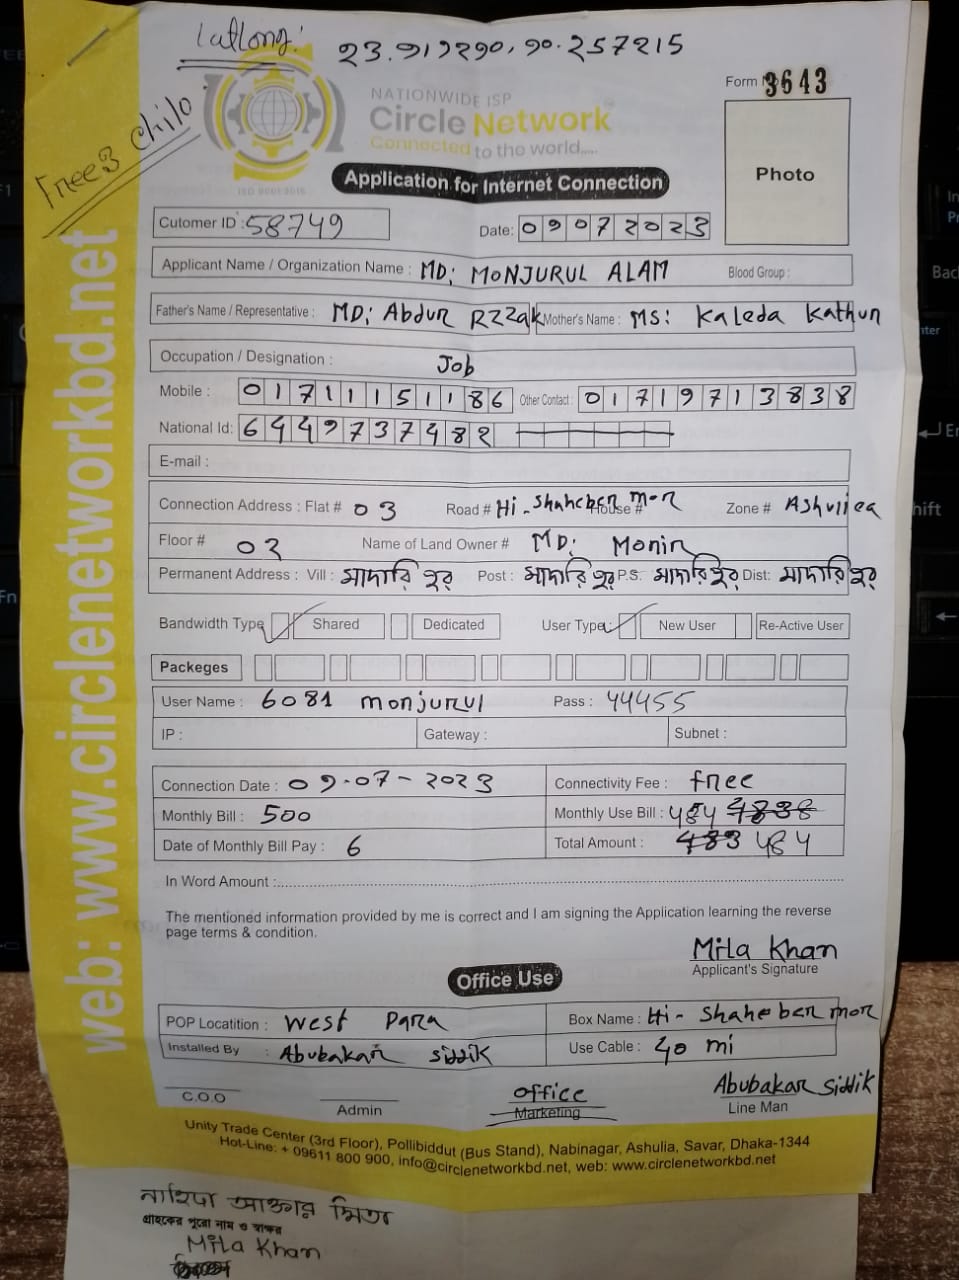 Latlong: 23.919290, 90.257215
Free3 Child
NATIONWIDE ISP
Circle Network
Connected to the world.....
ISO 9001:2015
Form 3643
Photo
Application for Internet Connection
Cutomer ID : 58749 Date: 09072023
Applicant Name / Organization Name : MD: MONJURUL ALAM Blood Group :
Father's Name / Representative : MD: Abdur RZZak Mother's Name : MS: Kaleda Kathun
Occupation / Designation : Job
Mobile : 01711151186 Other Contact : 01719713838
National Id: 6449737482
E-mail :
Connection Address : Flat # 03 Road # Hi-Shaheber mor House # Zone # Ashuliea
Floor # 02 Name of Land Owner # MD: Monir
Permanent Address : Vill : মাদারিপুর Post : মাদারিপুর P.S. মাদারিপুর Dist: মাদারিপুর
Bandwidth Type Shared Dedicated User Type: New User Re-Active User
Packeges
User Name : 6081 monjurul Pass : 44455
IP : Gateway : Subnet :
Connection Date : 09-07-2023 Connectivity Fee : free
Monthly Bill : 500 Monthly Use Bill : 484
Date of Monthly Bill Pay : 6 Total Amount : 483 484
In Word Amount :
The mentioned information provided by me is correct and I am signing the Application learning the reverse
page terms & condition.
Mila Khan
Applicant's Signature
Office Use
POP Locatition : West Para Box Name : Hi-Shaheber mor
Installed By : Abubakar Siddik Use Cable : 40 mi
C.O.O Admin office Marketing Abubakar Siddik Line Man
Unity Trade Center (3rd Floor), Pollibiddut (Bus Stand), Nabinagar, Ashulia, Savar, Dhaka-1344
Hot-Line: + 09611 800 900, info@circlenetworkbd.net, web: www.circlenetworkbd.net
web: www.circlenetworkbd.net
নাহিদা আক্তার মিতা
গ্রাহকের পুরো নাম ও স্বাক্ষর
Mila Khan